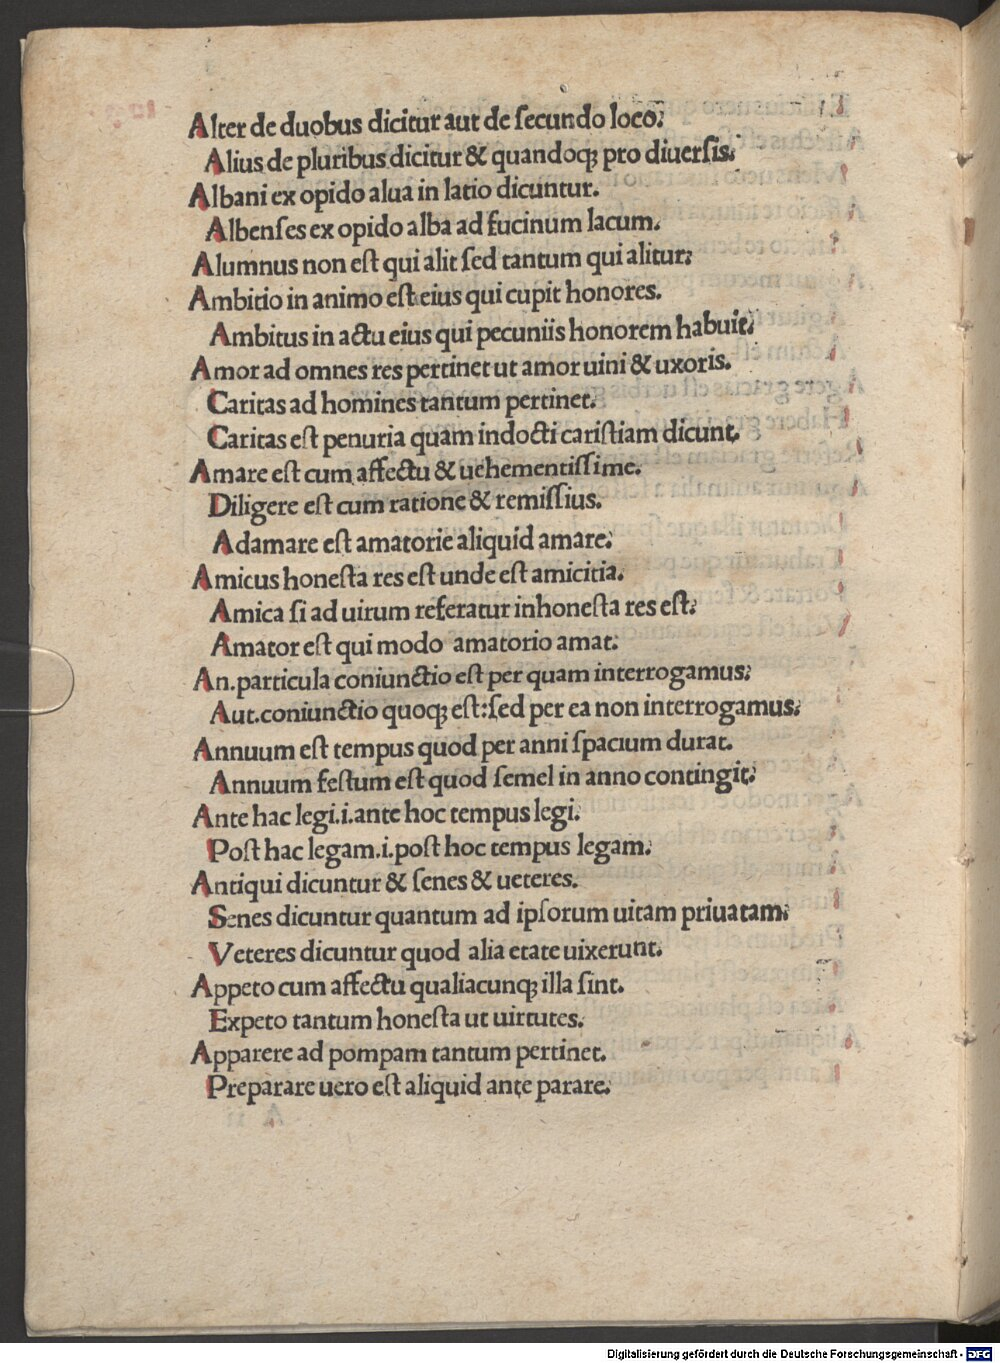 Alter de duobus dicitur aut de ſecundo loco;
Alius de pluribus dicitur & quandoqꝫ pro diuerſis;
Albani ex opido alua in latio dicuntur.
Albenſes ex opido alba ad fucinum lacum.
Alumnus non eſt qui alit ſed tantum qui alitur;
Ambitio in animo eſt eius qui cupit honores.
Ambitus in actu eius qui pecuniis honorem habuit;
Amor ad omnes res pertinet ut amor uini & uxoris.
Caritas ad homines tantum pertinet.
Caritas eſt penuria quam indocti cariſtiam dicunt.
Amare eſt cum affectu & uehementiſſime.
Diligere eſt cum ratione & remiſſius.
Adamare eſt amatorie aliquid amare;
Amicus honeſta res eſt unde eſt amicitia.
Amica ſi ad uirum referatur inhoneſta res eſt;
Amator eſt qui modo amatorio amat.
An.particula coniunctio eſt per quam interrogamus;
Aut.coniunctio quoqꝫ eſt:ſed per ea non interrogamus;
Annuum eſt tempus quod per anni ſpacium durat.
Annuum feſtum eſt quod ſemel in anno contingit;
Ante hac legi.i.ante hoc tempus legi.
Poſt hac legam.i.poſt hoc tempus legam;
Antiqui dicuntur & ſenes & ueteres.
Senes dicuntur quantum ad ipſorum uitam priuatam;
Veteres dicuntur quod alia etate uixerunt.
Appeto cum affectu qualiacunqꝫ illa ſint.
Expeto tantum honeſta ut uirtutes.
Apparere ad pompam tantum pertinet.
Preparare uero eſt aliquid ante parare;
Digitalisierung gefördert durch die Deutsche Forschungsgemeinschaft - DFG